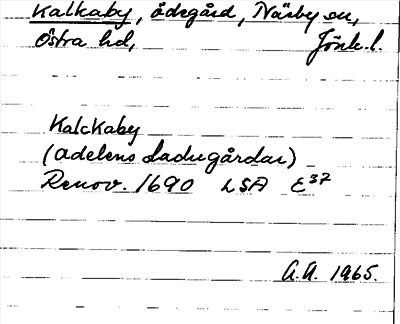 Kalkaby, ödegård, Näsby sn,
Östra hd, Jönk. l.
Kalckaby
(adelens Ladugårdar)
Renov. 1690 LSA E37
A.A. 1965.